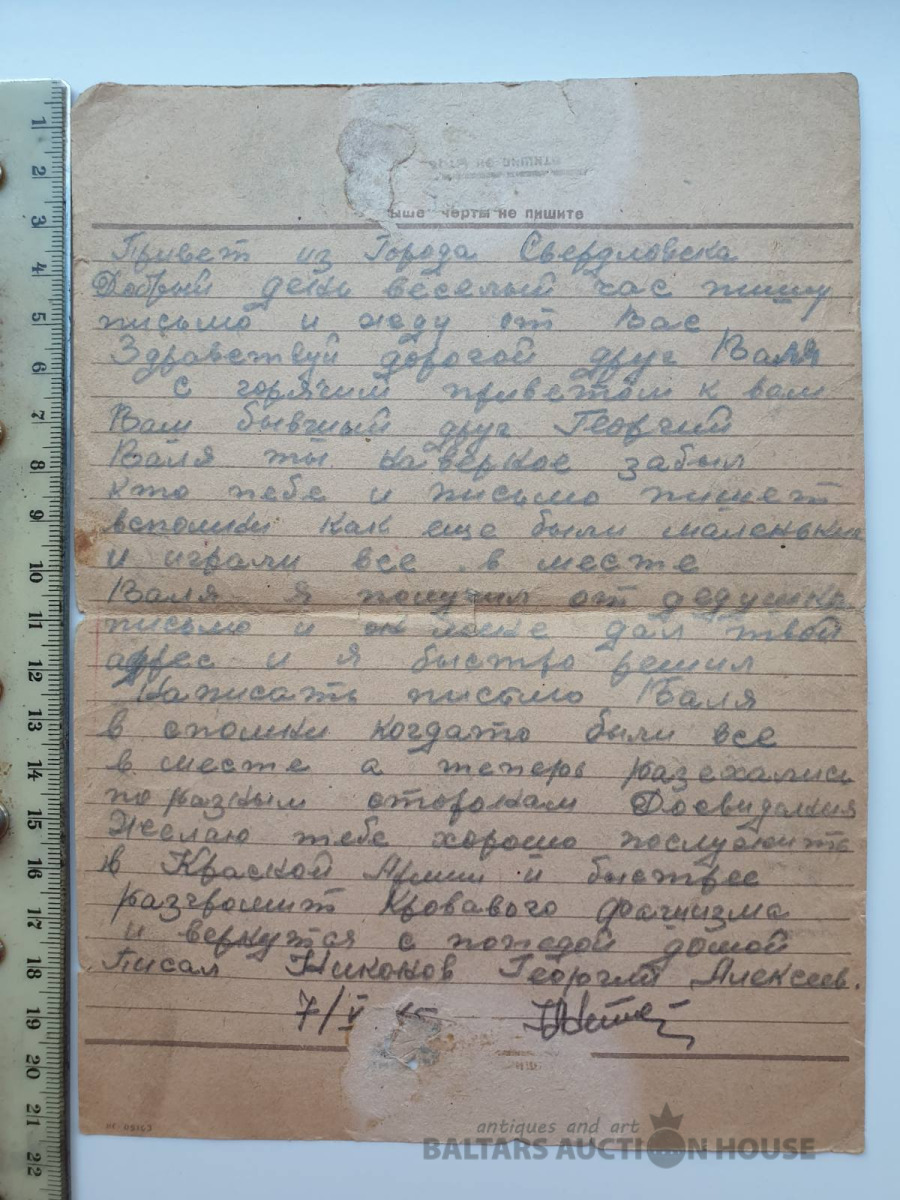 ыше черты не пишите
Привет из Города Свердловска
Добрый день веселый час пишу
письмо и жду от Вас
Здравствуй дорогой друг Валя
с горячим приветом к вам
Вам бывчий друг Георгий
Валя ты наверное забыл
кто тебе и письмо пишет
вспомни как еще были маленьким
и играли все в месте
Валя я получил от дедушка
письмо и он мне дал твой
адрес и я быстро решил
Написать письмо Валя
в спомни когдато были все
в месте а теперь разехались
по разным сторонам Досвидания
Желаю тебе хорошо послужить
в Красной Армии и быстрее
разгромит Кровавого фашизма
и вернутся с победой домой
Писал Никонов Георгий Алексеев.
7/V
antiques and art
BALTARS AUCTION HOUSE
1
2
3
4
5
6
7
8
9
10
11
12
13
14
15
16
17
18
19
20
21
22